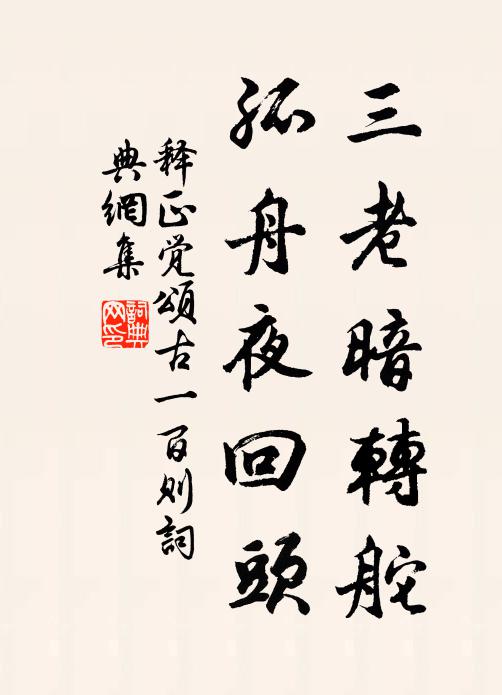 三老暗轉舵
孤舟夜回頭
释正觉頌古一百则詞
典網集
詞典网印